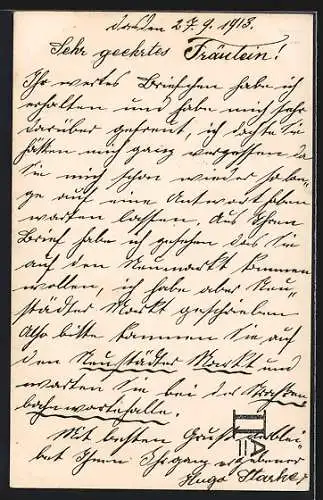 Dresden 27.9.1913.
Sehr geehrtes Fräulein!
Ihr wertes Briefchen habe ich
erhalten und habe mich sehr
darüber gefreut, ich dachte Sie
hätten mich ganz vergessen da
Sie mich schon wieder so lan-
ge auf eine Antwort haben
warten lassen. Aus Ihren
Brief habe ich gesehen das Sie
auf den Neumarkt kommen
wollen, ich habe aber Neu-
städter Markt geschrieben
Also bitte kommen Sie auf
den Neustädter Markt und
warten Sie bei der Straßen
bahnwartehalle.
Mit besten Gruß verblei-
bet Ihnen Ihr ganz ergebener
Hugo Starke